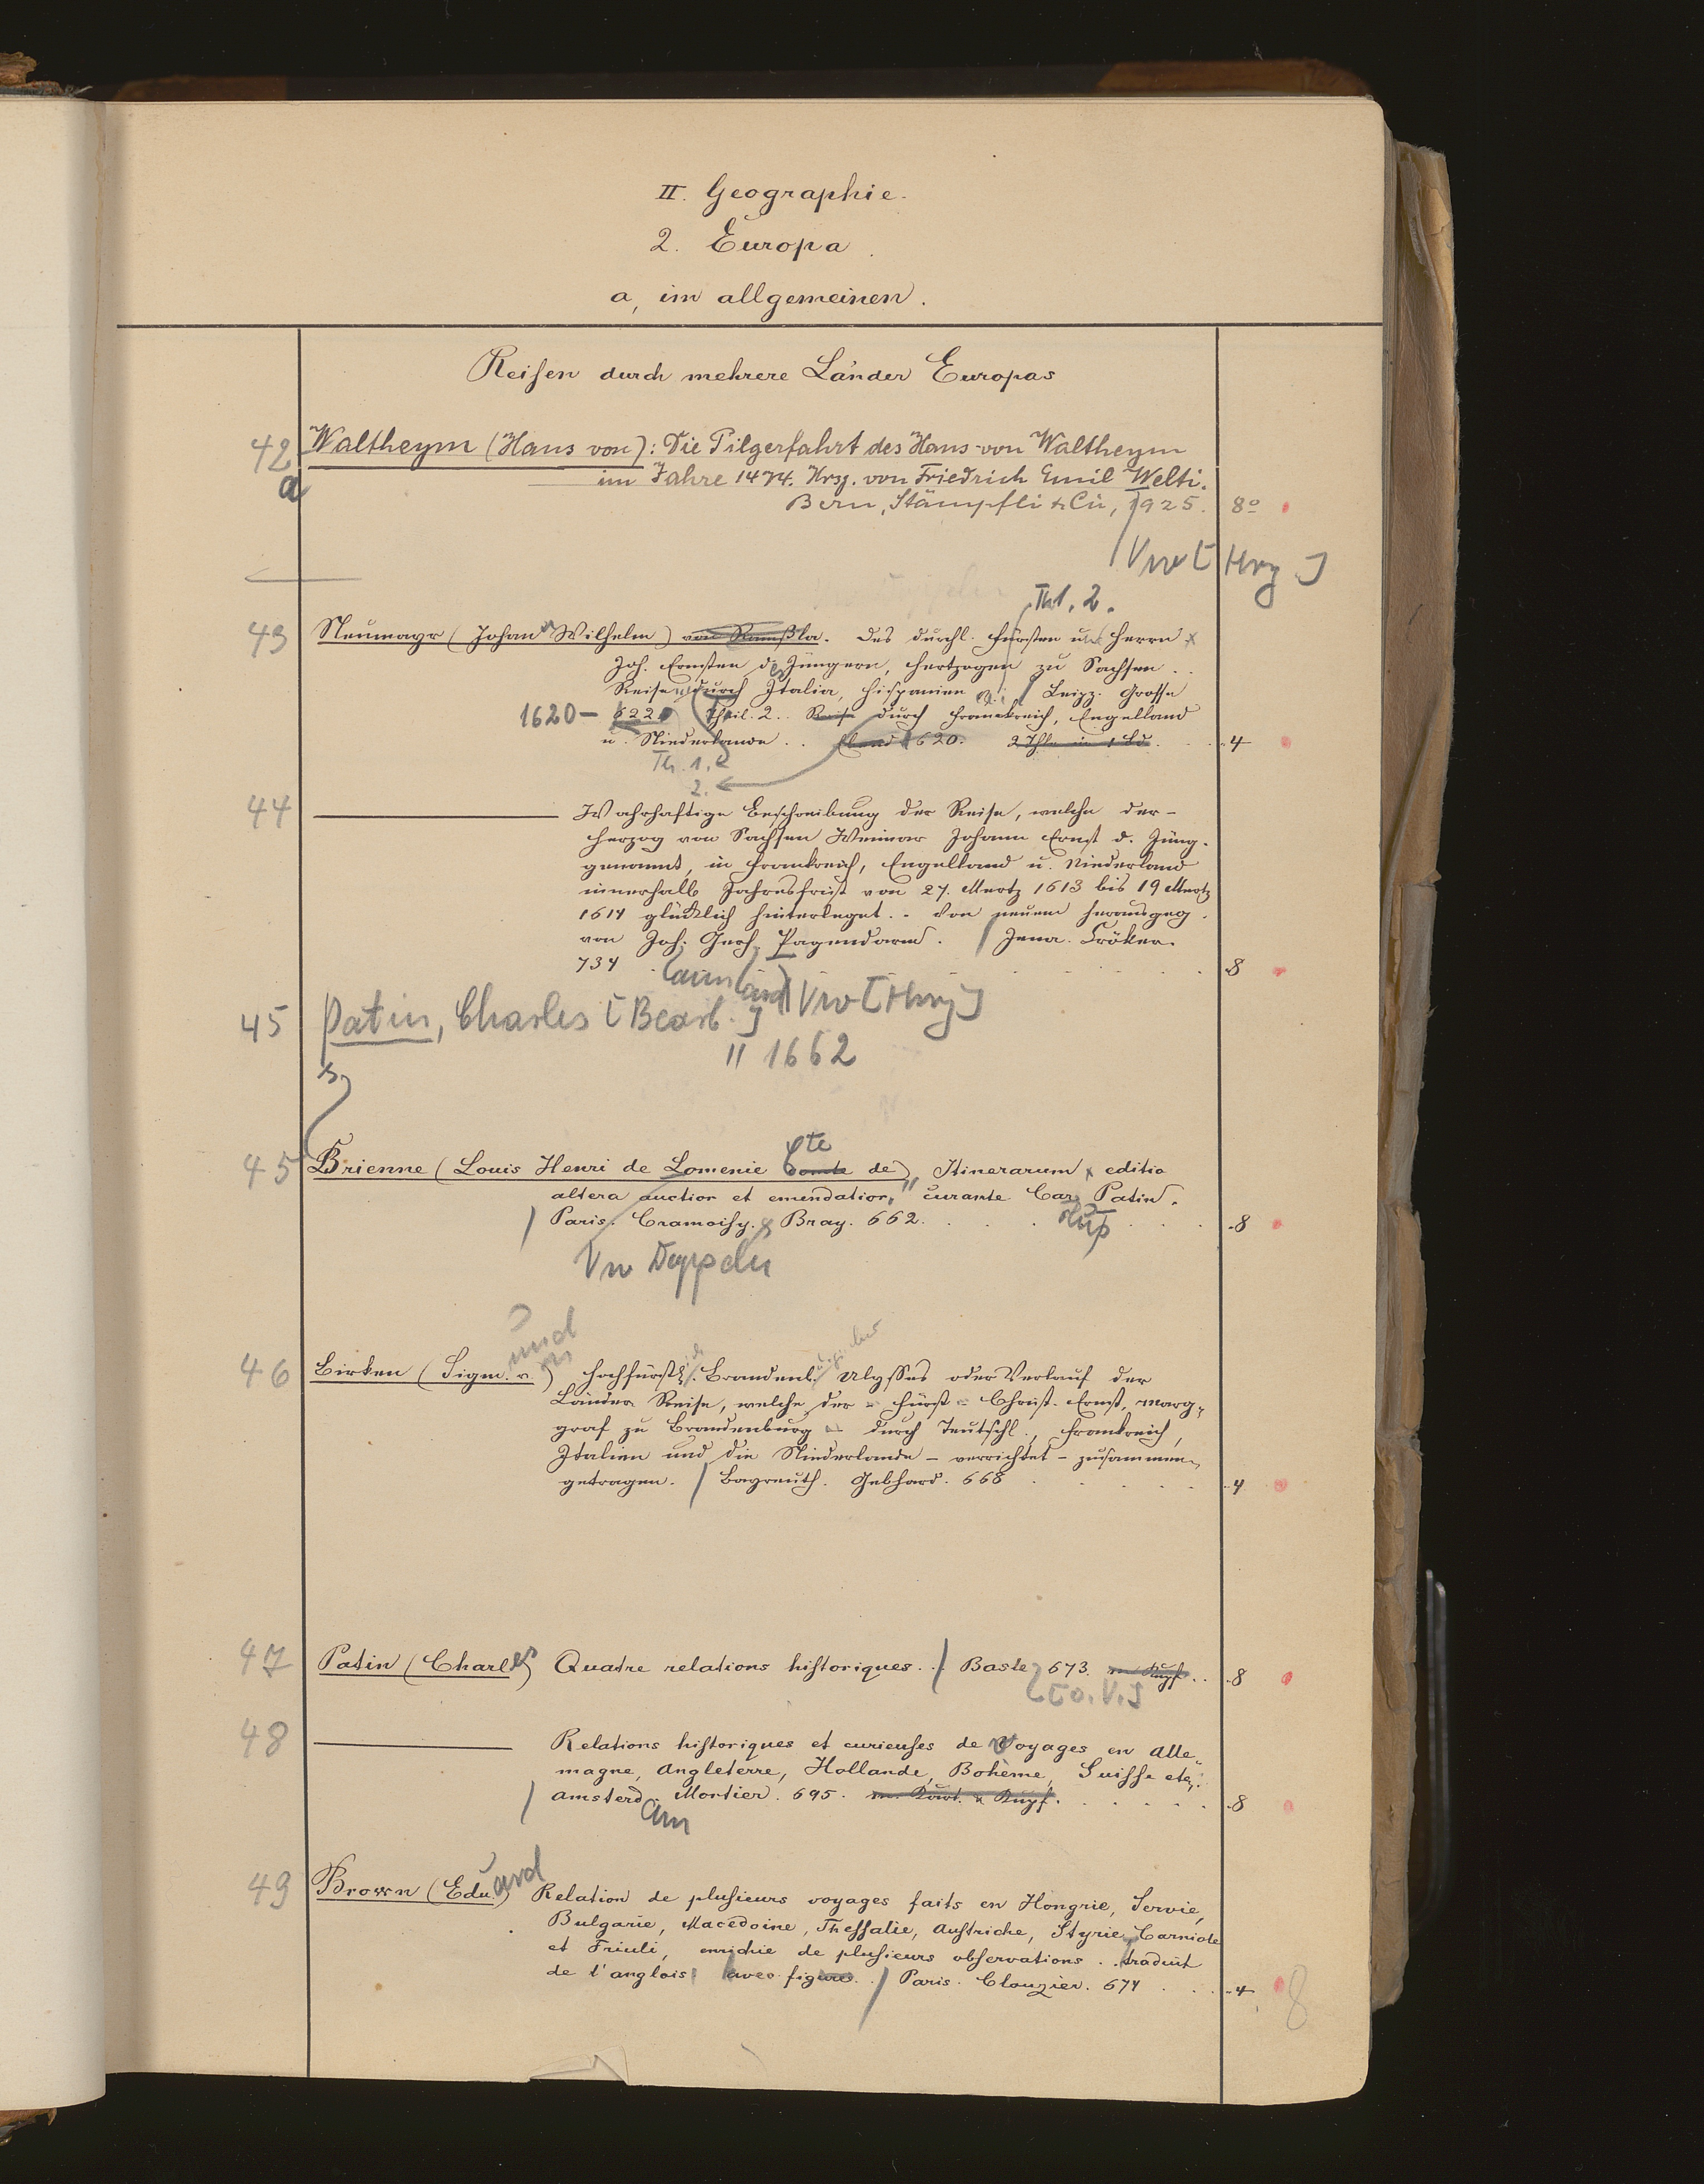 II. Geographie.
2. Europa
a, im allgemeinen.
Reisen durch mehrere Länder Europas
42a Waltheym (Hans von): Die Pilgerfahrt des Hans von Waltheym
im Jahre 1474. Hrsg. von Friedrich Emil Welti.
Bern, Stämpfli & Cie, 1925. 8º
Vw [Hrg]
Thl. 2.
43 Neumayr (Johan Wilhelm) von Ramßla. Des durchl. Fürsten und Herrn
Joh. Ernsten des Jüngern, Hertzogen zu Sachsen ..
Reise durch Italia, Hispanien / Leipz. Grosse
1620- 622 Theil. 2.. Reise durch Franckreich, Engelland
u. Niederlande .. 620. 2 Thle in 1 Bd. 4
Th. 1.
2.
44 ——— Wahrhaftige Beschreibung der Reise, welche der -
Herzog von Sachsen Weimar Johann Ernst d. Jüng.
genannt, in Frankreich, Engelland u. Niederland
innerhalb Jahresfrist von 27. Mertz 1613 bis 19 Mertz
1614 glücklich hinterleget .. Von neuem herausgeg.
von Joh. Gerh. Pagendarm. / Jena. Cröker.
734 8
Vw [Hrg]
45 Patin, Charles [Bearb.]
" 1662
45 Brienne (Louis Henri de Lomenie Comte de) Cte Itinerarum editio
altera auctior et emendatior, curante Car. Patin.
/ Paris. Cramoisy. & Bray. 662. 8
Vw Doppelu
und
46 Birken (Sigm. v.) Hochfürstl. Brandenb. Ulysses oder Verlauf der
Länder Reise, welche der - Fürst - Christ. Ernst, Marg-
graf zu Brandenburg - durch Teutschl., Frankreich,
Italien und die Niederlande - verrichtet - zusammen-
getragen. / Bayreuth. Gebhard. 668 4
47 Patin (Charles) Quatre relations historiques .. / Basle 673. m Kupf. .. 8
[o. V.]
48 ——— Relations historiques et curieuses de Voyages en Alle-
magne, Angleterre, Hollande, Bohème, Suisse etc.
/ Amsterd. Mortier. 695. m. & Kupf. 8
am
49 Brown (Edu.) ard Relation de plusieurs voyages faits en Hongrie, Servie,
Bulgarie, Macedoine, Thessalie, Austriche, Styrie, Carniole
et Friuli, enrichie de plusieurs observations .. traduit
de l'anglois avec figures .. / Paris. Clouzier. 674 4 8